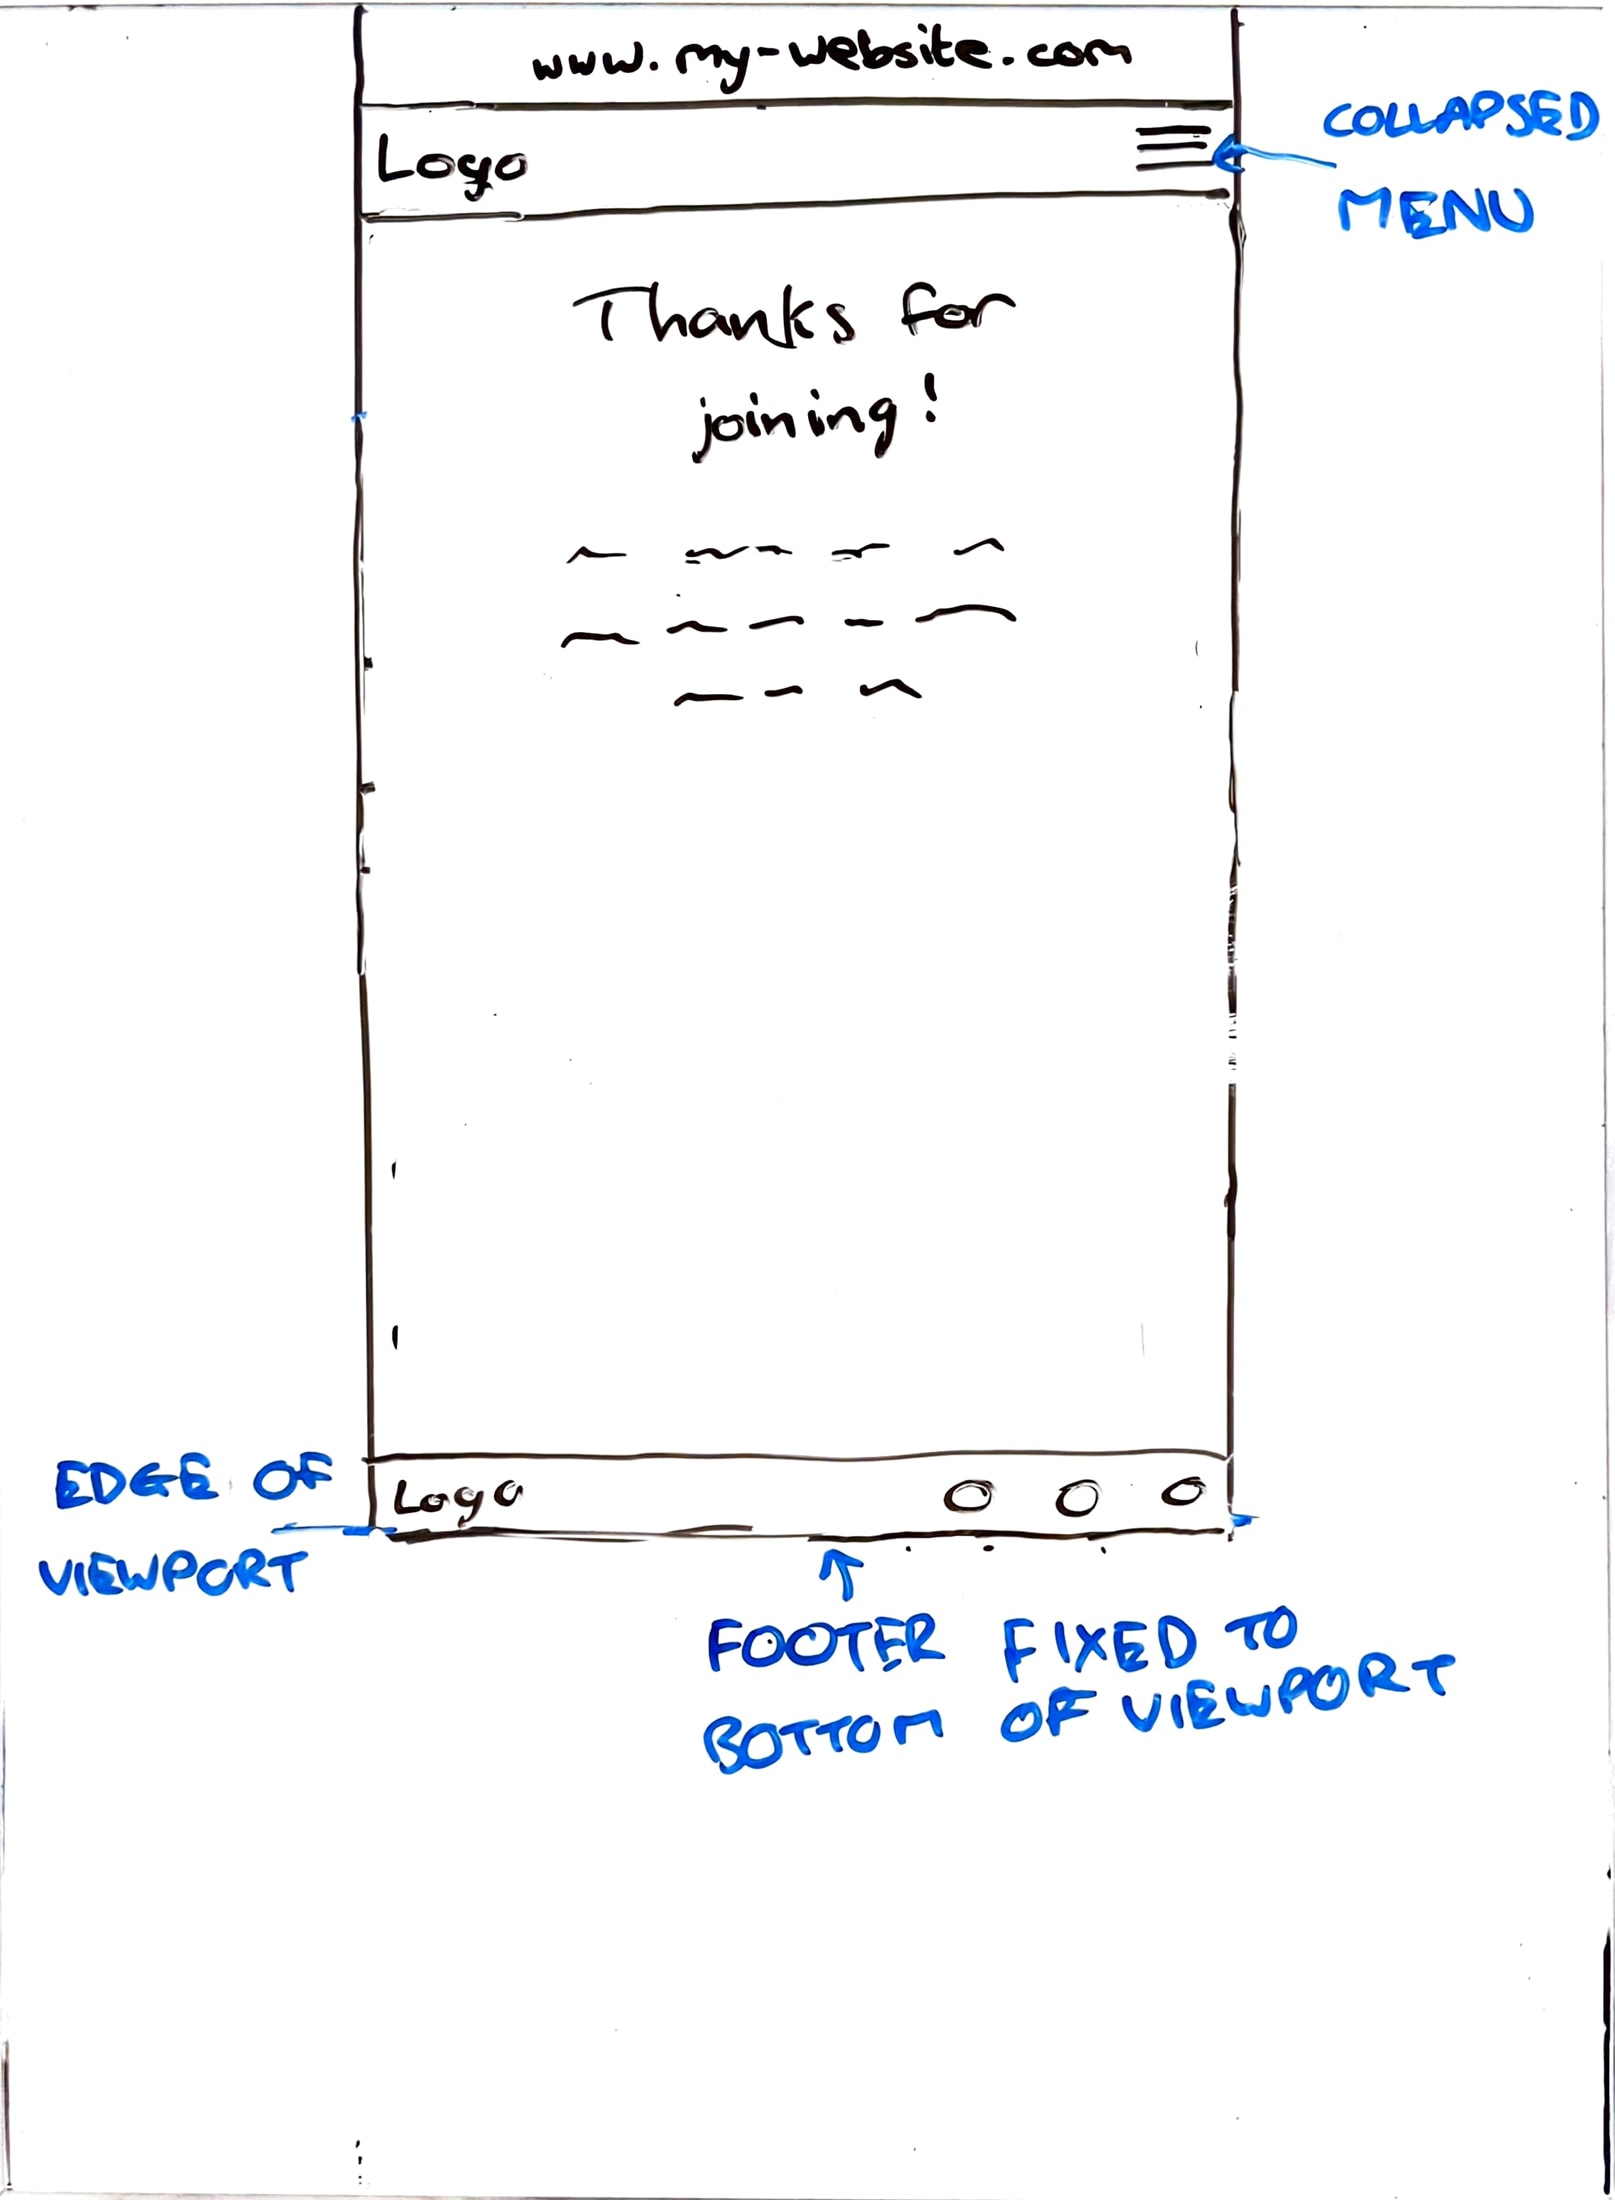 www.my-website.com
Logo
COLLAPSED
MENU
Thanks for
joining!
EDGE OF
VIEWPORT
Logo
FOOTER FIXED TO
BOTTOM OF VIEWPORT